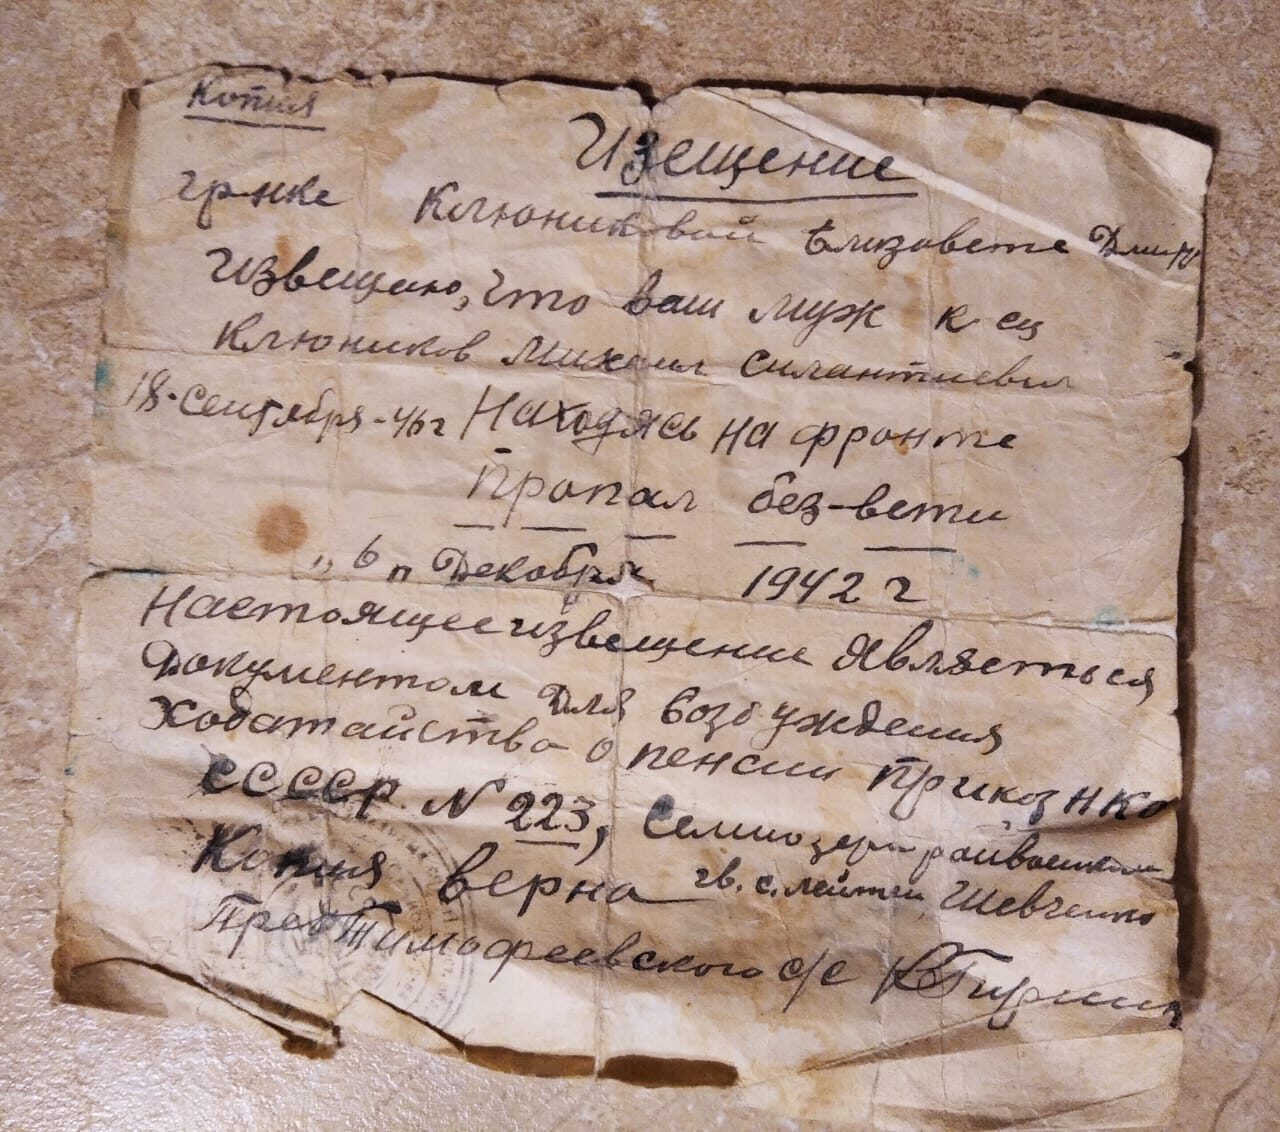 Копия
Изещение
гр-нке Клюниковой Елизовете Дмит
Извещаю, что ваш муж к-ец
Клюников Михаил Силантиевич
18-сентября-46г Находясь на фронте
Пропал без-вети
"6" Декабря 1942 г
Настоящее извещение являеться
Документом для возбуждения
Ходатайства о пенсии Приказ НКО
СССР N 223, Семиозерн райвоенком
Копия верна гв. с. лейтен Шевченко
Пред Тимофеевского с/с